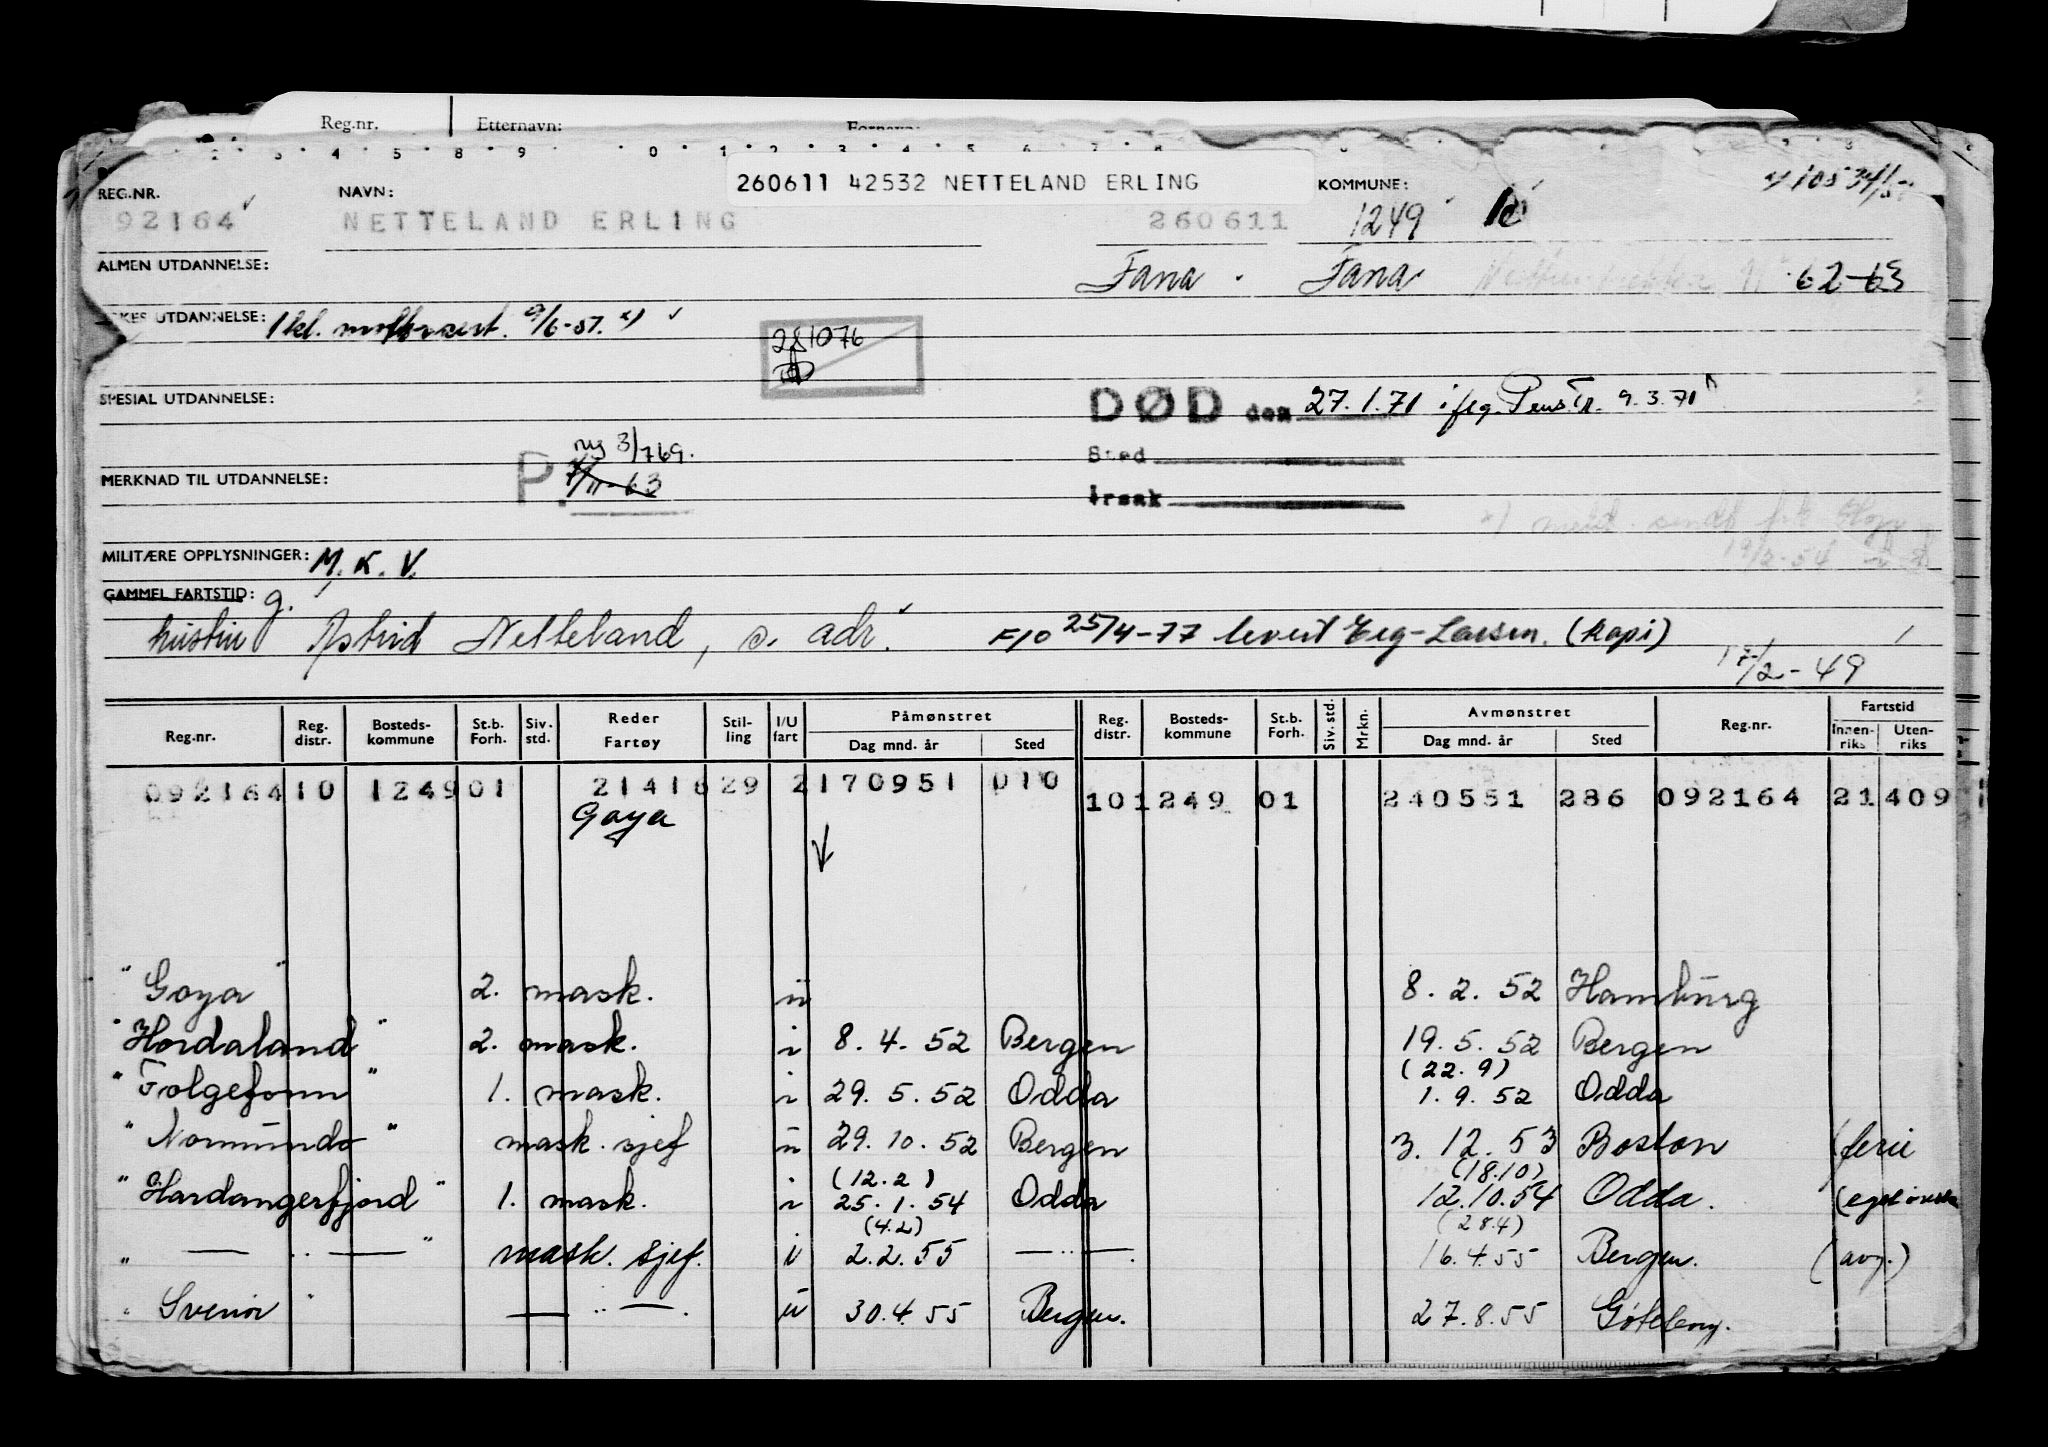 Reg.nr. Etternavn: Fornavn:
260611 42532 NETTELAND ERLING
REG.NR. NAVN: KOMMUNE:
92164 NETTELAND ERLING 260611 1249
ALMEN UTDANNELSE:
Fana . Fana 62-63
UTDANNELSE: 1 kl. 9/6-51. x)
281076
SPESIAL UTDANNELSE:
DØD den 27.1.71 iflg. Pens.Tr. 9.3.71
ny 3/769.
Sted
MERKNAD TIL UTDANNELSE: P. 7/11-63
Årsak
x) meld. sendt
19/2-54
MILITÆRE OPPLYSNINGER: M.K.V.
GAMMEL FARTSTID: g.
hustru Astrid Netteland, s. adr. F10 25/4-77 levert Eeg-Larsen. (kopi)
17/2-49
Reg.nr. Reg. distr. Bosteds- kommune St.b. Forh. Siv. std. Reder Fartøy Stil- ling I/U fart Påmønstret Dag mnd. år Sted Reg. distr. Bosteds- kommune St.b. Forh. Siv. std. Mrkn. Avmønstret Dag mnd. år Sted Reg.nr. Fartstid Innen- riks Uten- riks
092164 10 1249 01 2141629 2 170951 010 10 1249 01 240551 286 092164 21 409
Goya
" Goya " 2. mask. u 8. 2. 52 Hamburg
" Hordaland " 2. mask. i 8. 4. 52 Bergen 19. 5. 52 Bergen
(22. 9)
" Folgefonn " 1. mask. i 29. 5. 52 Odda 1. 9. 52 Odda
" Normundo " mask. sjef u 29. 10. 52 Bergen 3. 12. 53 Boston (ferie
(12. 2) (18.10)
" Hardangerfjord " 1. mask. i 25. 1. 54 Odda 12.10.54 Odda. (eget ønske
(4.2) (28.4)
" — " — " mask. sjef. i 2.2.55 — " — . 16.4.55 Bergen. (avg.)
" Svenør " — " — . u 30.4.55 Bergen. 27.8.55 Göteborg.